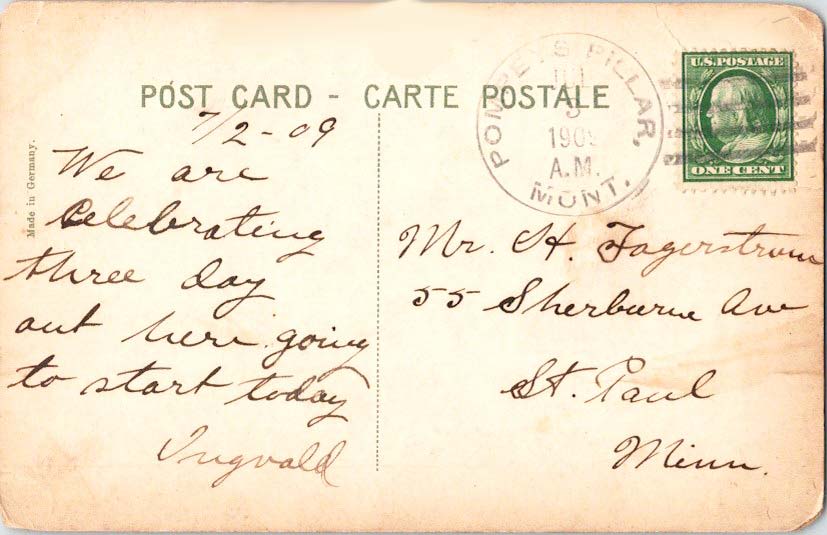 POST CARD - CARTE POSTALE
POMPEYS PILLAR,
JUL
3
1909
A.M.
MONT.
U.S. POSTAGE
ONE CENT
Made in Germany.
7/2-09
We are
Celebrating
three day
out here going
to start today
Ingvald
Mr. H. Fagerstrum
55 Sherburne Ave
St. Paul
Minn.